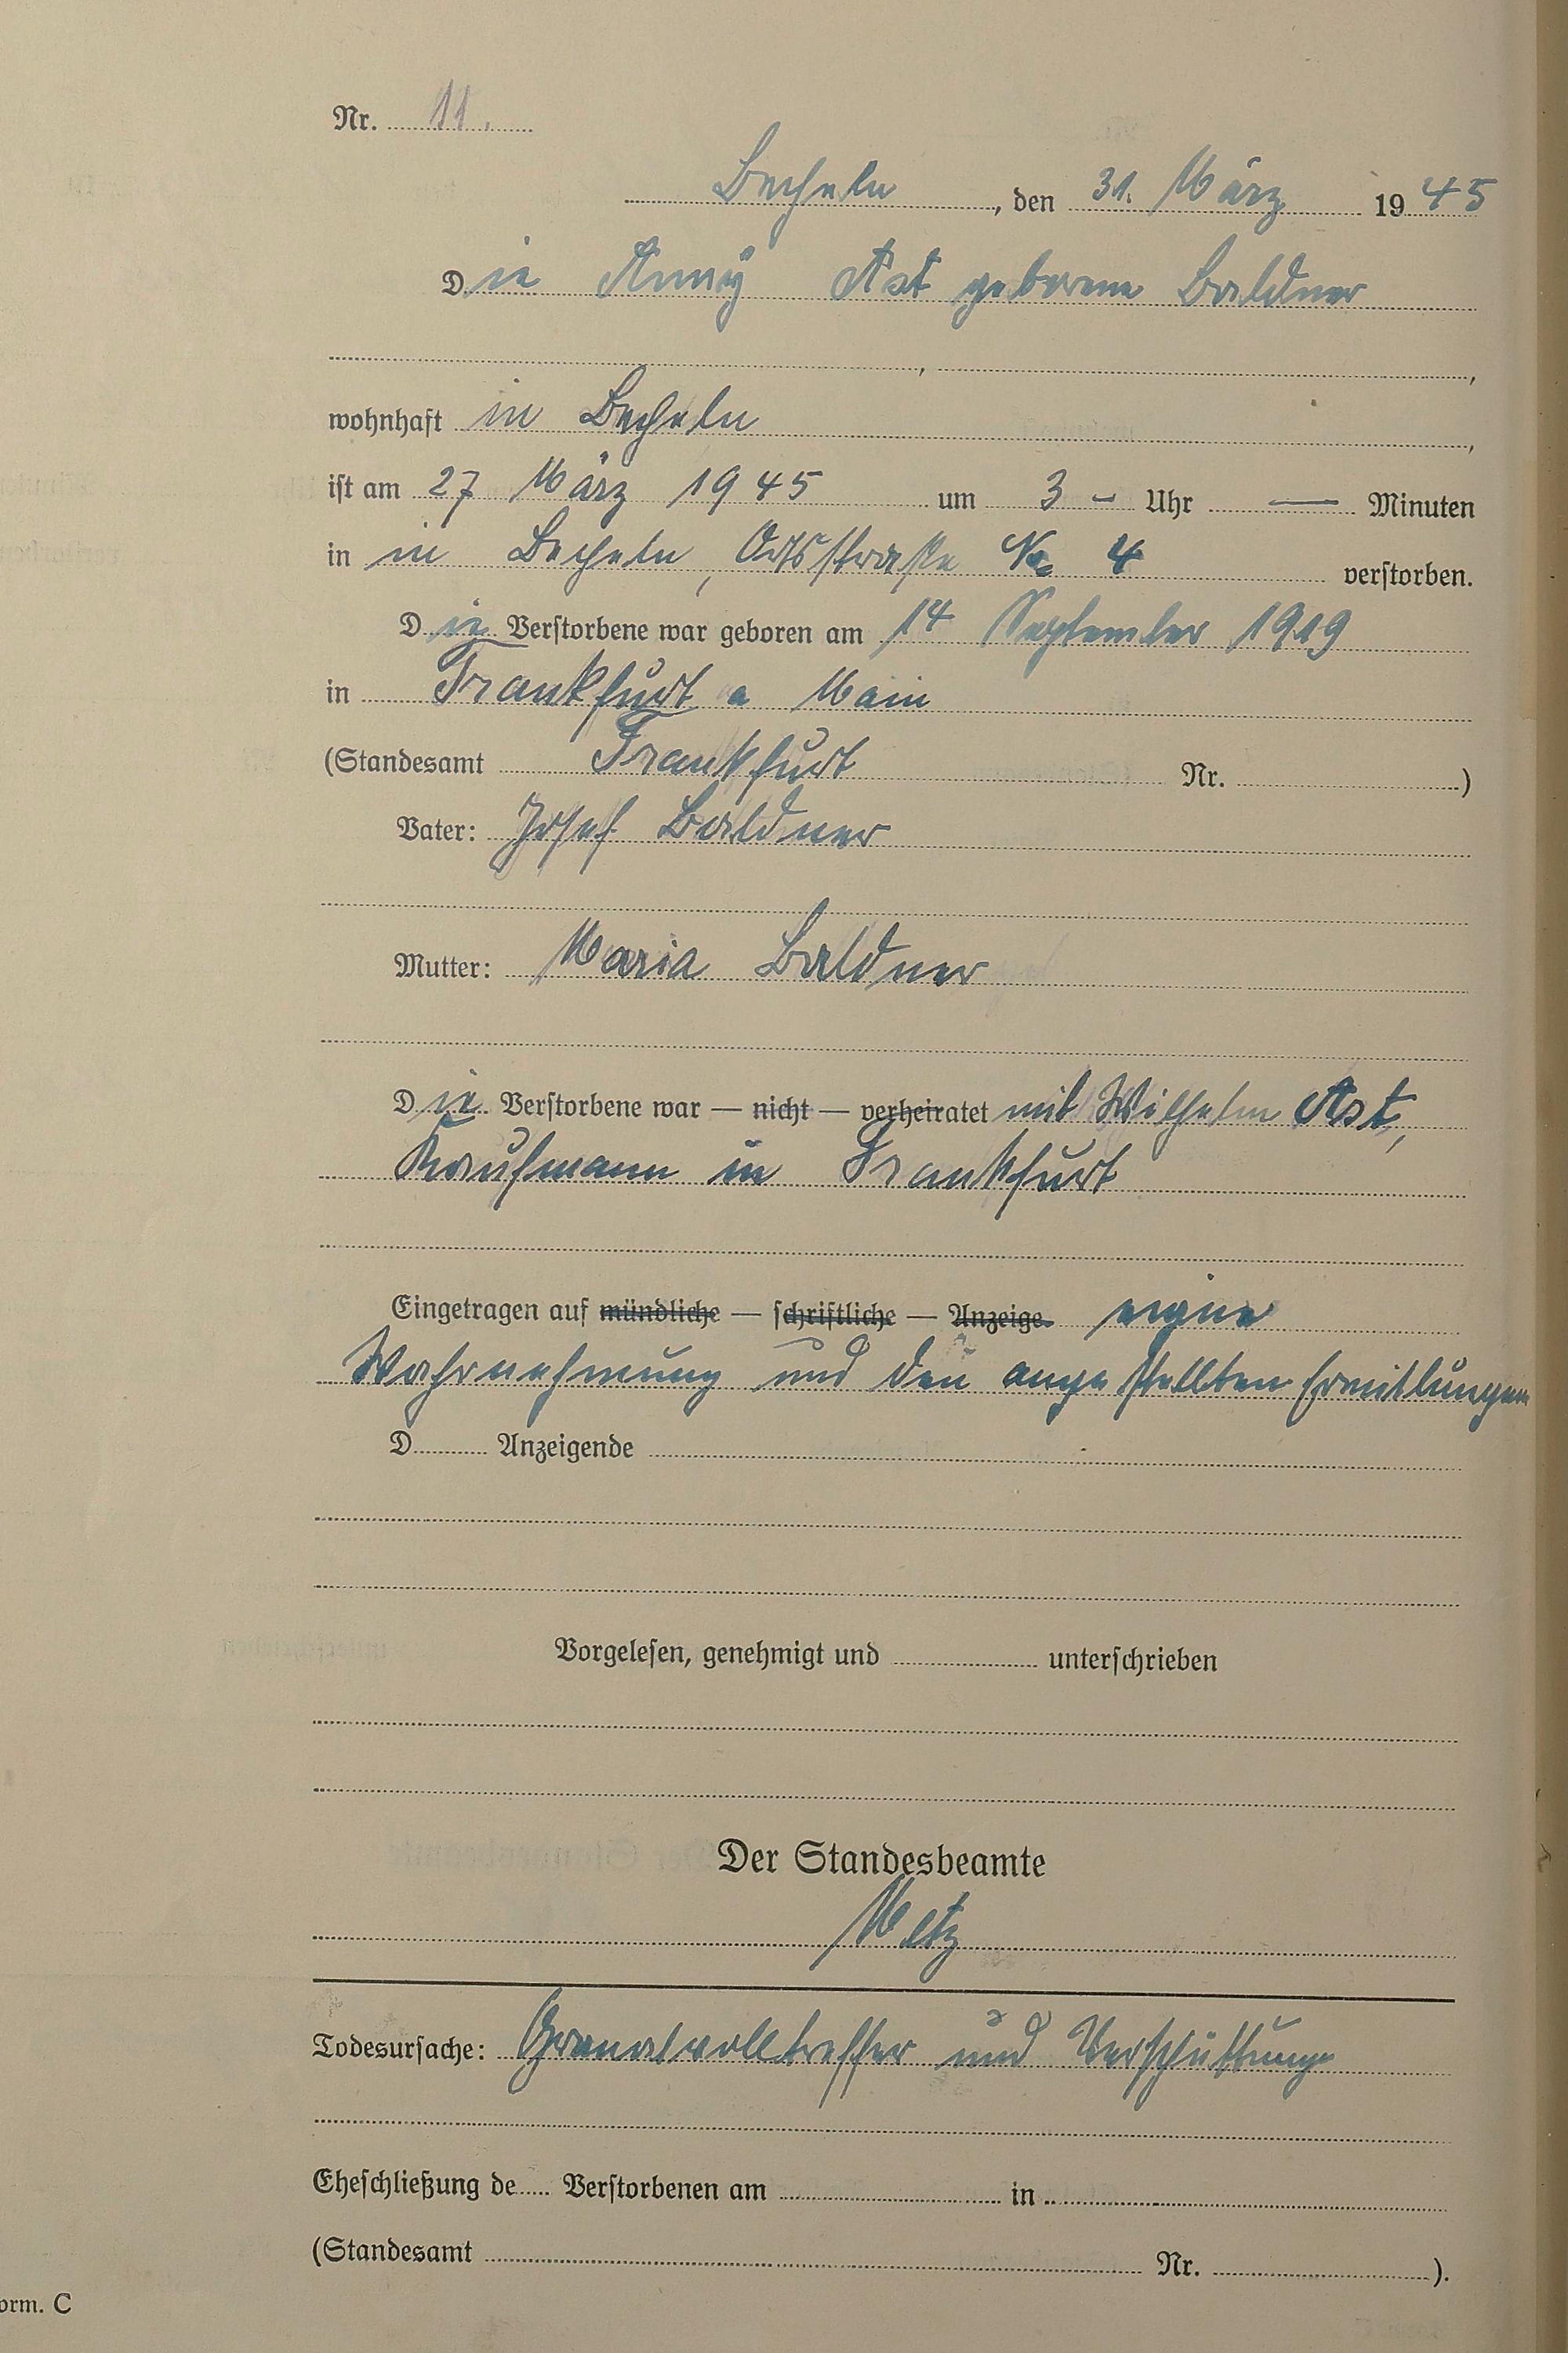 Nr. 11.
Becheln, den 31. März 1945
Die Anny Ast geborene Baldner
wohnhaft in Becheln,
ist am 27 März 1945 um 3 – Uhr — Minuten
in in Becheln, Ortsstraße No 4 verstorben.
Die Verstorbene war geboren am 14 September 1919
in Frankfurt a Main
(Standesamt Frankfurt Nr. )
Vater: Josef Baldner
Mutter: Maria Baldner
Die Verstorbene war — nicht — verheiratet mit Wilhelm Ast,
Kaufmann in Frankfurt
Eingetragen auf mündliche — schriftliche — Anzeige. eigne
Wahrnehmung und den angestellten Ermittlungen
D Anzeigende
Vorgelesen, genehmigt und unterschrieben
Der Standesbeamte
Metz
Todesursache: Granatvolltreffer und Verschüttung
Eheschließung de Verstorbenen am in
(Standesamt Nr. ).
orm. C